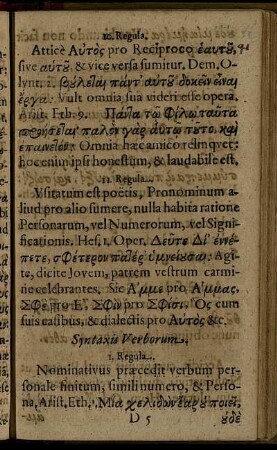 10. Regula.
Atticè Αὐτὸς pro Reciproco ἑαυτοῦ,
sive αὑτοῦ & vice versa sumitur. Dem. O-
lynt. 1. βούλεται πάντ' αὐτοῦ δοκεῖν εἶναι
ἔργα: Vult omnia sua videri esse opera.
Arist. Eth. 9. Πάντα τῷ φίλῳ ταῦτα
καλὸν γὰρ αὐτῷ τοῦτο καὶ
ἐπαινετόν. Omnia hæc amico relinquet:
hoc enim ipsi honestum, & laudabile est.
11. Regula.
Usitatum est poëtis, Pronominum a-
liud pro alio sumere, nulla habita ratione
Personarum, vel Numerorum, vel Signi-
ficationis. Hes. 1. Oper. Δεῦτε Δί' ἐννέ-
πετε, σφέτερον πατέρ' ὑμνείουσαι: Agi-
te, dicite Jovem, patrem vestrum carmi-
ne celebrantes. Sic Ἄμμε pro Ἄμμας,
Σφὲ pro Ἓ, Σφὶν pro Σφίσι. Ὃς cum
suis casibus, & dialectis pro Αὐτὸς &c.
Syntaxis Verborum.
1. Regula.
Nominativus præcedit verbum per-
sonale finitum, simili numero, & Perso-
na, Arist. Eth. 1. Μία χελιδὼν ἔαρ οὐ ποιεῖ,
D 5 οὐδὲ